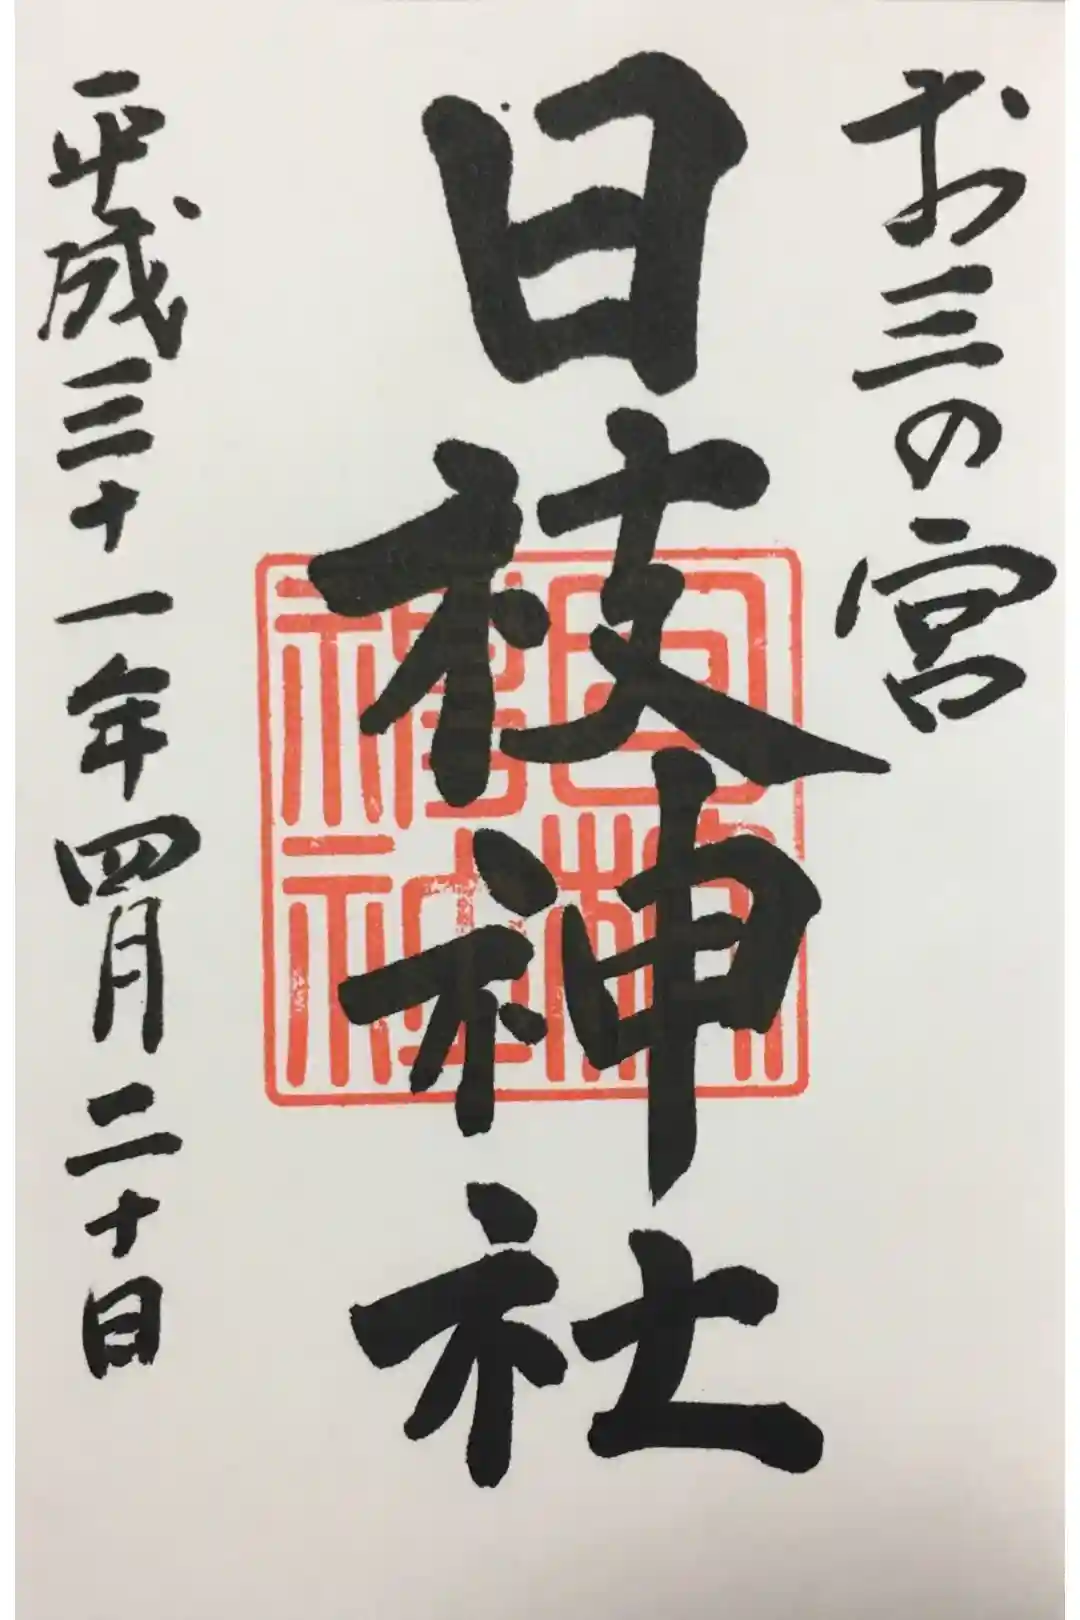 お三の宮
日枝神社
日枝神社
平成三十一年四月二十日